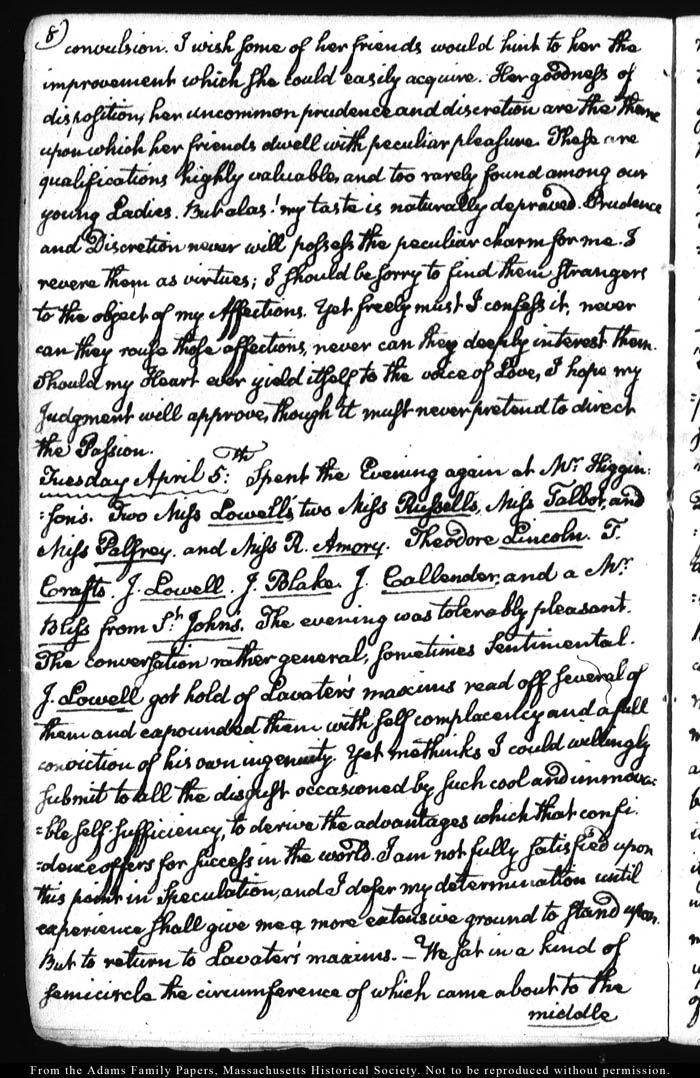 8)
convulsion. I wish some of her friends would hint to her the
improvement which she could easily acquire. Her goodness of
disposition, her uncommon prudence and discretion are the theme
upon which her friends dwell with peculiar pleasure. These are
qualifications highly valuable, and too rarely found among our
young Ladies. But alas! my taste is naturally depraved. Prudence
and Discretion never will possess the peculiar charm for me. I
revere them as virtues; I should be sorry to find them strangers
to the object of my Affections. Yet freely must I confess it, never
can they rouse those affections, never can they deeply interest them.
Should my Heart ever yield itself to the voice of Love, I hope my
Judgment will approve, though it must never pretend to direct
the Passion.
Tuesday April 5:th Spent the Evening again at Mr. Higgin:
:son's. Two Miss Lowell's, two Miss Russells, Miss Talbot, and
Miss Palfrey. and Miss R. Amory. Theodore Lincoln. T.
Crafts. J. Lowell. J. Blake. J. Callender, and a Mr.
Bliss from St. Johns. The evening was tolerably pleasant.
The conversation rather general, sometimes Sentimental.
J. Lowell got hold of Lavater's maxims read off several of
them and expounded them with self complacency and a full
conviction of his own ingenuity. Yet methinks I could willingly
submit to all the disgust occasioned by such cool and immova:
:ble self-sufficiency, to derive the advantages which that confi:
:dence offers for success in the world. I am not fully satisfied upon
this point in Speculation, and I defer my determination until
experience shall give me a more extensive ground to stand upon.
But to return to Lavater's maxims. — We sat in a kind of
semicircle the circumference of which came about to the
middle
From the Adams Family Papers, Massachusetts Historical Society. Not to be reproduced without permission.